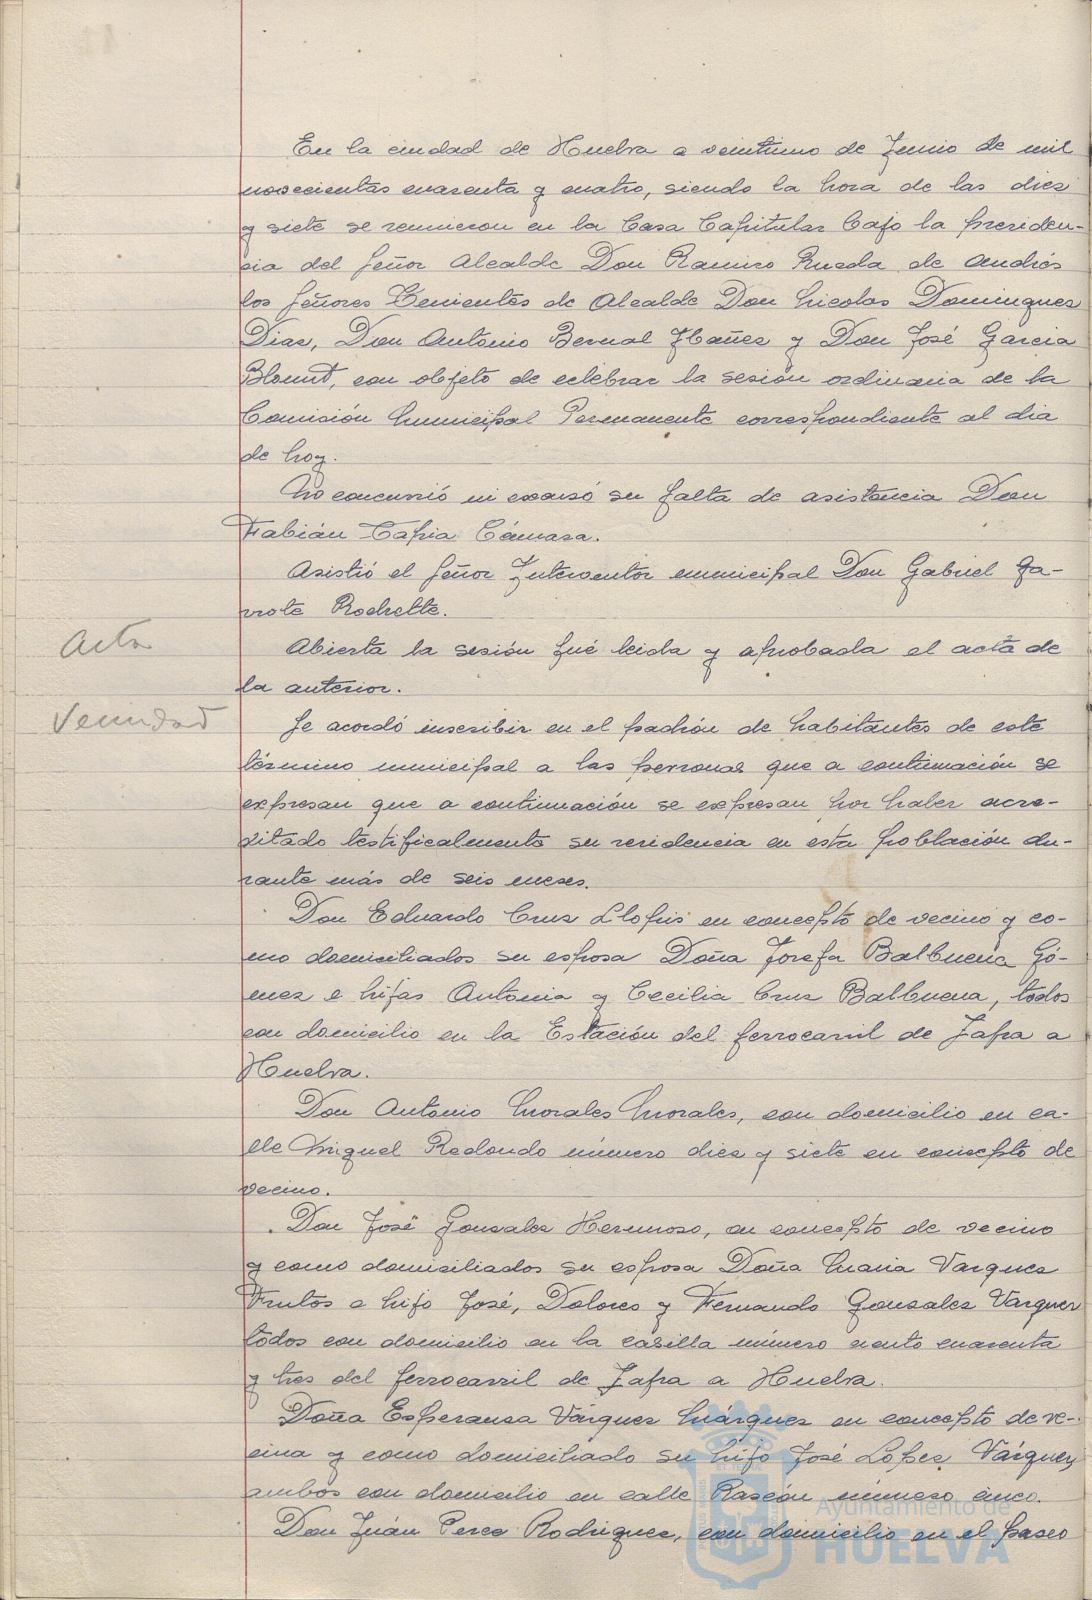 En la ciudad de Huelva a veintiuno de Junio de mil
novecientas cuarenta y cuatro, siendo la hora de las diez
y siete se reunieron en la Casa Capitular bajo la presiden-
cia del Señor Alcalde Don Ramiro Rueda de Andrés
los Señores Tenientes de Alcalde Don Nicolas Dominguez
Diaz, Don Antonio Bernal Ibañez y Don José Garcia
Blount, con objeto de celebrar la sesión ordinaria de la
Comisión Municipal Permanente correspondiente al dia
de hoy.
No concurrió ni excusó su falta de asistencia Don
Fabián Tapia Cámara.
Asistió el Señor Interventor municipal Don Gabriel Ga-
vrote Rochette.
Acta
Abierta la sesión fué leida y aprobada el acta de
la anterior.
Vecindad
Se acordó inscribir en el padrón de habitantes de este
término municipal a las personas que a continuación se
expresan que a continuación se expresan por haber acre-
ditado testificalmente su residencia en esta población du-
rante más de seis meses.
Don Eduardo Cruz Llopis en concepto de vecino y co-
mo domiciliados su esposa Doña Josefa Balbuena Gó-
mez e hijas Antonia y Cecilia Cruz Balbuena, todos
con domicilio en la Estación del ferrocarril de Zafra a
Huelva.
Don Antonio Morales Morales, con domicilio en ca-
lle Miguel Redondo número diez y siete en concepto de
vecino.
Don José Gonzalez Hermoso, en concepto de vecino
y como domiciliados su esposa Doña Maria Vazquez
Frutos e hijo José, Dolores y Fernando Gonzalez Vazquez
todos con domicilio en la casilla número ciento cuarenta
y tres del ferrocarril de Zafra a Huelva.
Doña Esperanza Vázquez Márquez en concepto de ve-
cina y como domiciliado su hijo José López Vázquez,
ambos con domicilio en calle Rascón número cinco.
Don Juán Perez Rodriguez, con domicilio en el paseo
Ayuntamiento de
HUELVA